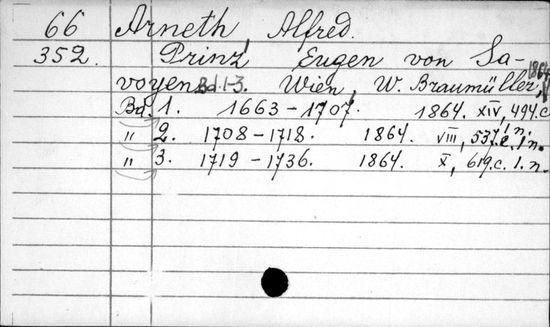 66 Arneth, Alfred.
352. Prinz Eugen von Sa-
voyen Bd. 1-3. Wien, W. Braumüller, 1864
Bd. 1. 1663-1707. 1864. XIV, 494.c.
" 2. 1708-1718. 1864. VIII, 537.c. 1.n.
" 3. 1719-1736. 1864. X, 619.c. 1.n.